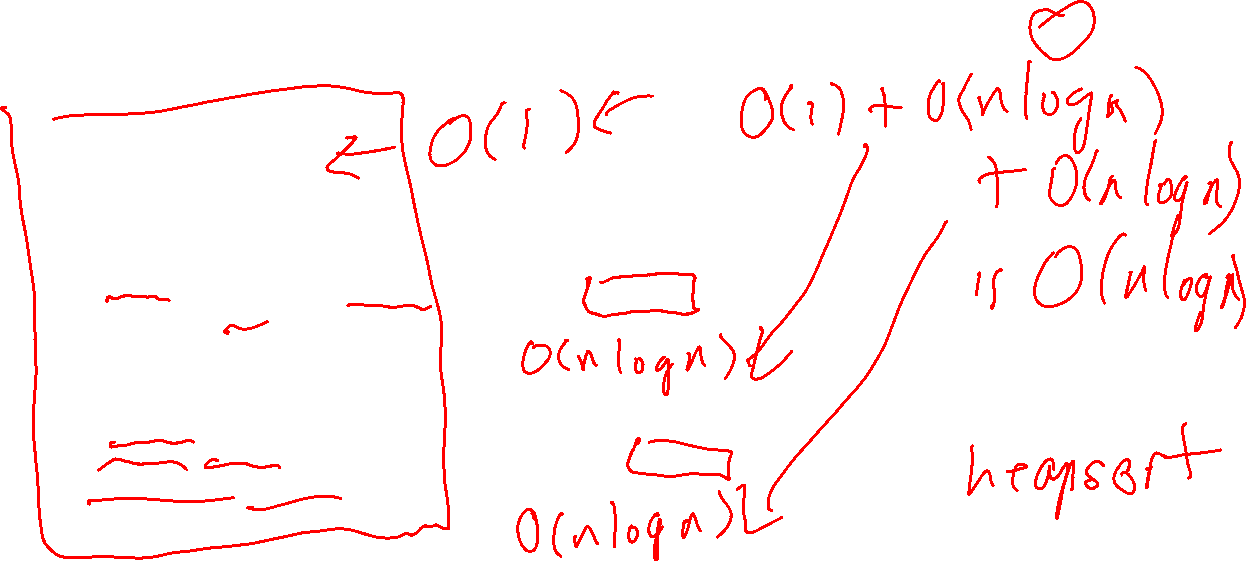 O(1) ← O(1) + O(n log n)
+ O(n log n)
is O(n log n)
O(n log n)
O(n log n)
heapsort